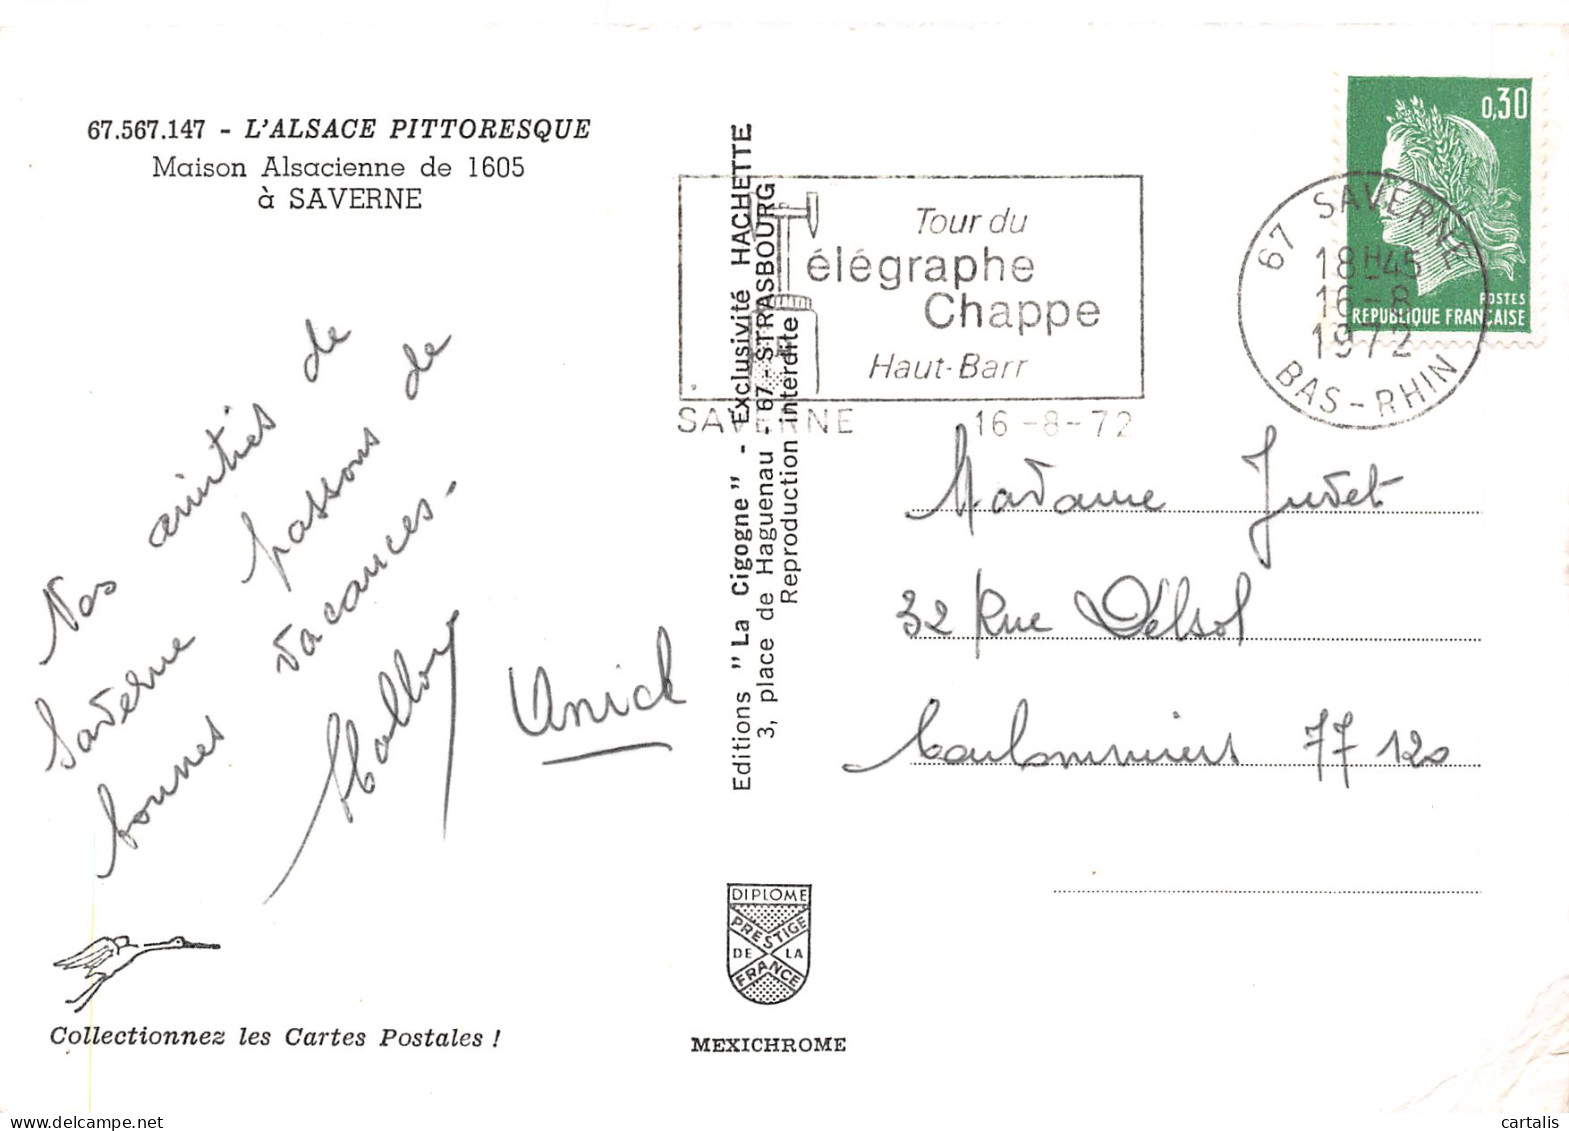 67.567.147 - L'ALSACE PITTORESQUE
Maison Alsacienne de 1605
à SAVERNE
Nos amitiés de
Saverne passons de
bonnes vacances -
Anick
Collectionnez les Cartes Postales !
Editions "La Cigogne" - Exclusivité HACHETTE
3, place de Haguenau - 67 - STRASBOURG
Reproduction interdite
DIPLOME
PRESTIGE
DE LA
FRANCE
MEXICHROME
Tour du
élégraphe
Chappe
Haut-Barr
SAVERNE 16-8-72
67 SAVERNE
18H45
16-8
1972
BAS-RHIN
0,30
POSTES
REPUBLIQUE FRANÇAISE
Madame Judet
32 Rue Delsol
Coulommiers 77 120
cartalis